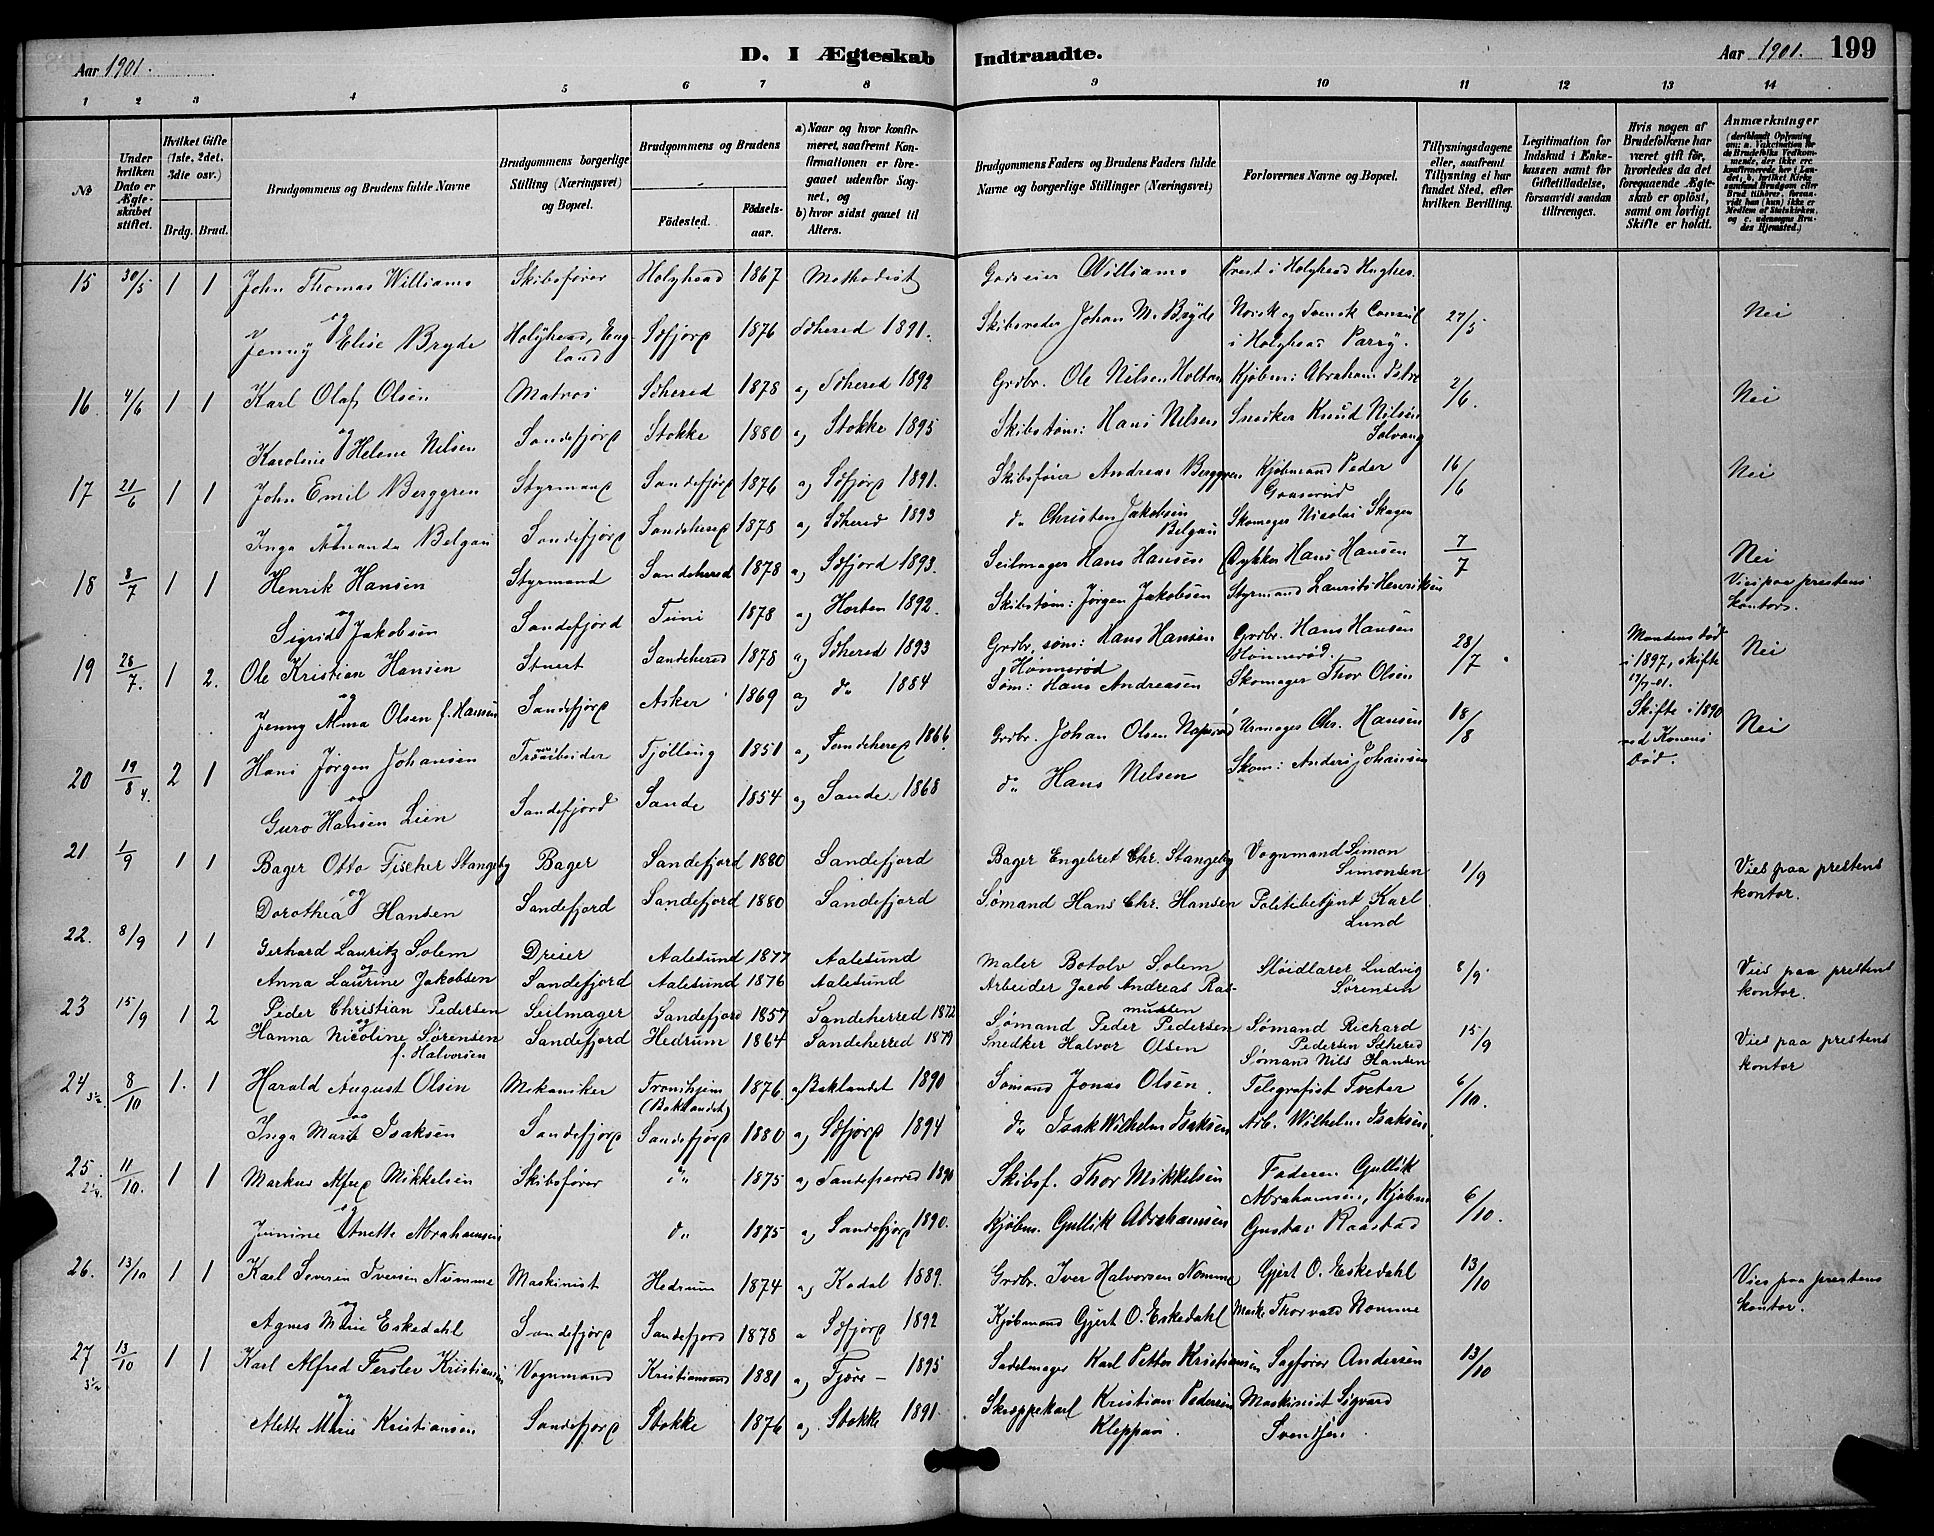 Aar 1901.
D. I Ægteskab Indtraadte.
Aar 1901.
199
1 2 3 4 5 6 7 8 9 10 11 12 13 14
No
Under hvilken Dato er Ægteskabet stiftet.
Hvilket Gifte (1ste, 2det, 3die osv.)
Brdg. Brud.
Brudgommens og Brudens fulde Navne
Brudgommens borgerlige Stilling (Næringsvei) og Bopæl.
Brudgommens og Brudens
Fødested.
Fødselsaar.
a) Naar og hvor konfirmeret, saafremt Konfirmationen er foregaaet udenfor Sognet, og
b) hvor sidst gaaet til Alters.
Brudgommens Faders og Brudens Faders fulde Navne og borgerlige Stillinger (Næringsvei)
Forlovernes Navne og Bopæl.
Tillysningsdagene eller, saafremt Tillysning ei har fundet Sted, efter hvilken Bevilling.
Legitimation for Indskud i Enkekassen samt for Giftetilladelse, forsaavidt saadan tiltrænges.
Hvis nogen af Brudefolkene har været gift før, hvorledes da det foregaaende Ægteskab er opløst, samt om lovligt Skifte er holdt.
Anmærkninger
15 30/5 1 1 John Thomas Williams Skibsfører Holyhead 1867 Methodist Godseier Williams Prest i Holyhead Hughes.
og
Jenny Elise Bryde Holyhead, England Sefjord 1876 Sdhered 1891. Skibsreder Johan M. Bryde Norsk og Svensk Consul i Holyhead Parry. 27/5 Nei
16. 4/6 1 1 Karl Olaf Olsen Matros Sdhered 1878 a) Sdhered 1892 Grdbr. Ole Nilsen Holtan Kjøbm: Abraham 2/6. Nei
og
Karoline Helene Nilsen Sandefjord Stokke 1880 a) Stokke 1895 Skibstøm: Hans Nilsen Snedker Knud Nilsen Solvang
17 21/6 1 1 John Emil Berggren Styrmand Sandefjord 1876 a) Sdfjord 1891. Skibsfører Andreas Berggren Kjøbmand Peder Graaerud 16/6 Nei
og
Inga Amanda Belgau Sandefjord Sandeherred 1878 a) Sdhered 1893 do Christen Jakobsen Belgau Skomager Nicolai Skagen
18 8/7 1 1 Henrik Hansen Styrmand Sandehered 1878 a) Sdfjord 1893. Seilmager Hans Hansen Dykker Hans Hansen 7/7 Nei
Viet paa prestens kontor.
og
Sigrid Jakobsen Sandefjord Tune 1878 a) Horten 1892. Skibstøm: Jørgen Jakobsen Styrmand Laurits Henriksen
19 28/7. 1 2. Ole Kristian Hansen Stuert Sandehered 1878 a) Sdhered 1893 Grdbr. søm: Hans Hansen Hønnerød Grdbr. Hans Hansen Hønnerød. 28/7 Mandens død i 1897, skifte 17/7-01. Nei
og
Jenny Alma Olsen f. Hansen Sandefjord Asker 1869 a) do 1884 Søm: Hans Andreasen Skomager Thor Olsen
20 19/8 2 1 Hans Jørgen Johansen Træarbeider Tjølling 1851 a) Sandehered 1866. Grdbr. Johan Olsen Urmager Chr. Hansen 18/8 Skifte i 1890 ved Konens død. Nei
og
Guro Hansen Lien Sandefjord Sande 1854 a) Sande 1868 do Hans Nilsen Skom: Anders Johansen
21 1/9 1 1 Bager Otto Fischer Stangeby Bager Sandefjord 1880 Sandefjord Bager Engebret Chr. Stangeby Vognmand Simon Simonsen 1/9 Viet paa prestens kontor.
og
Dorothea Hansen Sandefjord Sandefjord 1880 Sandefjord Sømand Hans Chr. Hansen Politibetjnt Karl Lund
22. 8/9 1 1 Gerhard Lauritz Solem Dreier Aalesund 1877 Aalesund Maler Botolv Solem Støidlarer Ludvig Sørensen 8/9. Viet paa prestens kontor.
og
Anna Laurine Jakobsen Sandefjord Aalesund 1876 Aalesund Arbeider Jacob Andreas Rasmussen
23 15/9 1 2 Peder Christian Pedersen Seilmager Sandefjord 1857 Sandeherred 1872 Sømand Peder Pedersen Sømand Richard Pedersen Sdhered 15/9 Viet paa prestens kontor
og
Hanna Nicoline Sørensen f. Halvorsen Sandefjord Hedrum 1864 Sandeherred 1879 Snedker Halvor Olsen Sømand Nils Hansen
24 8/10 1. 1 Harald August Olsen Mekaniker Trondhjem (Baklandet) 1876 a) Baklandet 1890 Sømand Jonas Olsen. Telegrafist Tveter 6/10.
og
Inga Marie Isaksen Sandefjord Sandefjord 1880 a) Sdfjord 1894 do Isak Wilhelm Isaksen Arb. Wilhelm Isaksen.
25. 11/10. 1 1 Markus Alfred Mikkelsen Skibsfører do 1875 a) Sandeherred 1890 Skibsf. Thor Mikkelsen Faderen Gullik Abrahamsen, Kjøbm 6/10.
og
Jennine Anette Abrahamsen do 1875 a) Sandefjord 1890. Kjøbm. Gullik Abrahamsen Gustav Raastad
26. 13/10 1 1 Karl Severin Iversen Nomme Maskinist Hedrum 1874 a) Kodal 1889. Grdbr. Iver Halvorsen Nomme Gjert O. Eskedahl 13/10 Viet paa prestens kontor.
og
Agnes Marie Eskedahl Sandefjord Sandefjord 1878 a Sdfjord 1892 Kjøbmand Gjert O. Eskedahl Mask. Thorvald Nomme
27 13/10 1 1 Karl Alfred Ferslev Kristiansen Vognmand Kristiansand 1881 a) Tjøre - 1895 Sadelmager Karl Petter Kristiansen Sagfører Andersen 13/10
og
Alette Marie Kristiansen Sandefjord Stokke 1876 a) Stokke 1891. Skræppekarl Kristian Pedersen Kleppan. Maskinist Sigvard Svendsen.